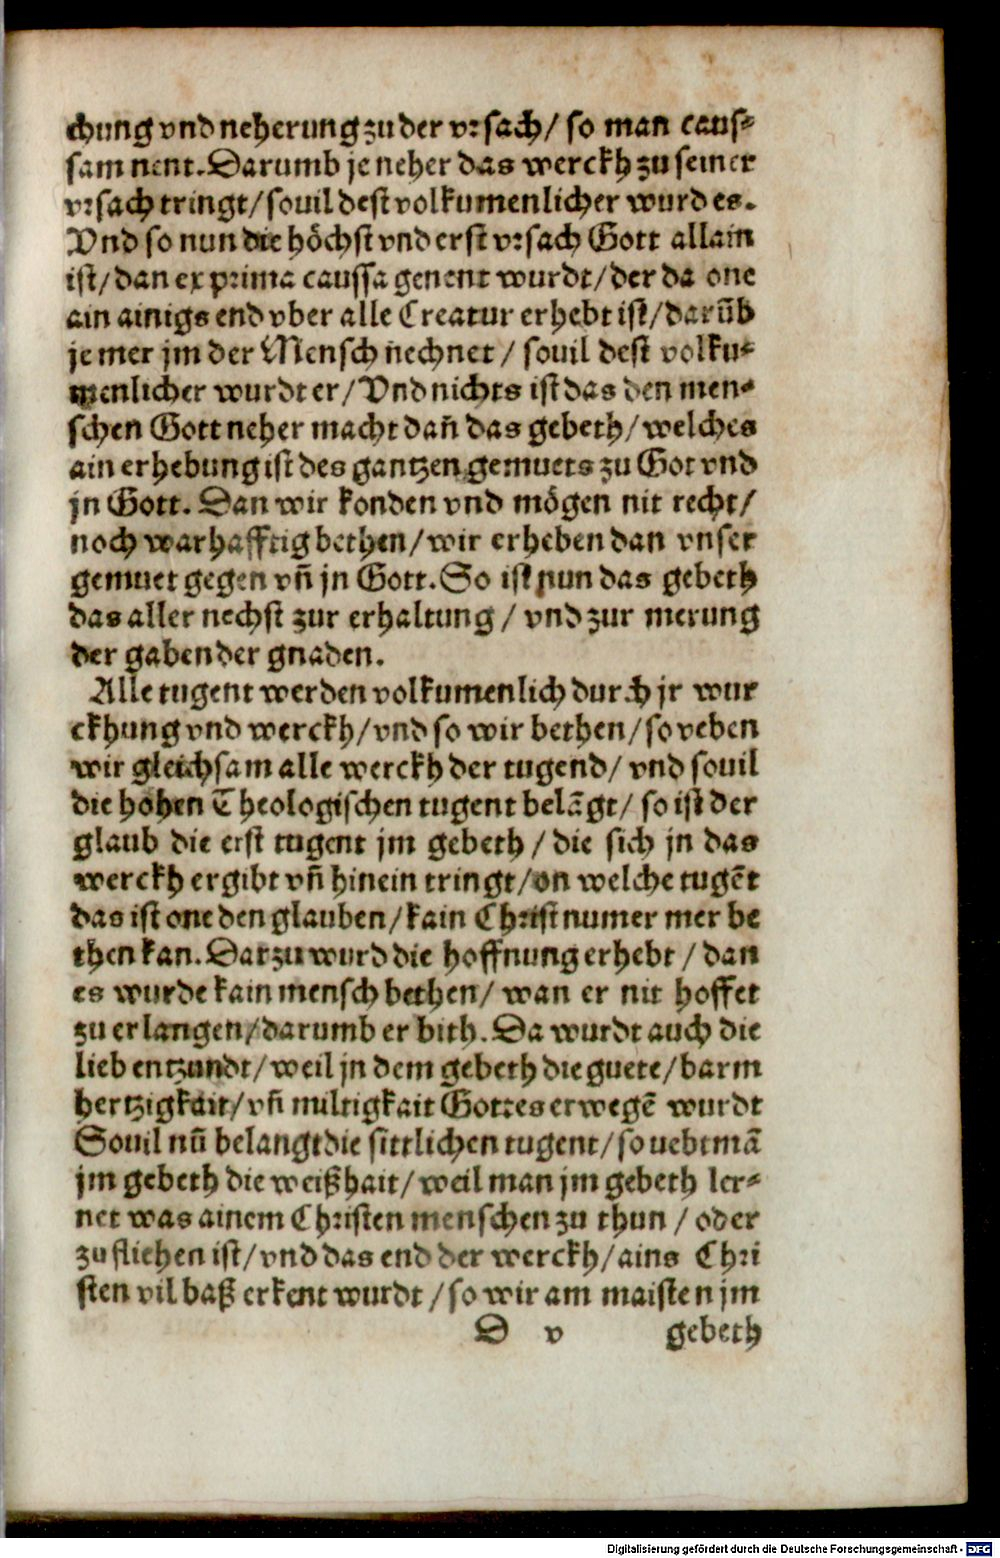 chung vnd neherung zu der vrsach/ so man caus⸗
sam nent. Darumb je neher das werckh zu seiner
vrsach tringt/ souil dest volkumenlicher wurd es.
Vnd so nun die höchst vnd erst vrsach Gott allain
ist/ dan ex prima caussa genent wurdt/ der da one
ain ainigs end vber alle Creatur erhebt ist/ darūb
je mer jm der Mensch nechnet/ souil dest volku⸗
menlicher wurdt er/ Vnd nichts ist das den men⸗
schen Gott neher macht dañ das gebeth/ welches
ain erhebung ist des gantzen gemuets zu Got vnd
jn Gott. Dan wir konden vnd mögen nit recht/
noch warhafftig bethen/ wir erheben dan vnser
gemuet gegen vñ jn Gott. So ist nun das gebeth
das aller nechst zur erhaltung/ vnd zur merung
der gaben der gnaden.
Alle tugent werden volkumenlich durch jr wur
ckhung vnd werckh/ vnd so wir bethen/ so veben
wir gleichsam alle werckh der tugend/ vnd souil
die hohen Theologischen tugent belāgt/ so ist der
glaub die erst tugent jm gebeth/ die sich jn das
werckh ergibt vñ hinein tringt/ on welche tugēt
das ist one den glauben/ kain Christ numer mer be
then kan. Darzu wurd die hoffnung erhebt/ dan
es wurde kain mensch bethen/ wan er nit hoffet
zu erlangen/ darumb er bith. Da wurdt auch die
lieb entzundt/ weil jn dem gebeth die guete/ barm
hertzigkait/ vñ miltigkait Gottes erwegē wurdt
Souil nū belangt die sittlichen tugent/ so uebt mā
jm gebeth die weißhait/ weil man jm gebeth ler⸗
net was ainem Christen menschen zu thun/ oder
zu fliehen ist/ vnd das end der werckh/ ains Chri
sten vil baß erkent wurdt/ so wir am maisten jm
D v gebeth
Digitalisierung gefördert durch die Deutsche Forschungsgemeinschaft - DFG